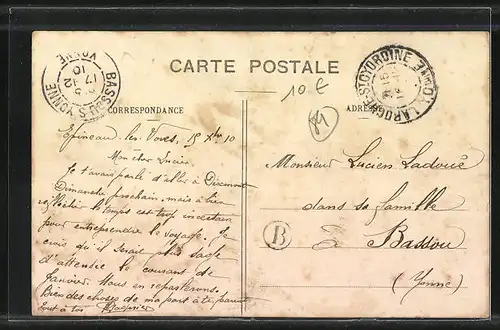 CARTE POSTALE
10 €
89
CORRESPONDANCE
ADRESSE
BASSOU YONNE
LAROCHE-ST-CYDROINE (YONNE)
Epineau les Voves, 15 Xbre 10
Mon cher Lucien
Je t'avais parlé d'aller à Dixmont
Dimanche prochain, mais à bien
réfléchir le temps est trop incertain
pour entreprendre le voyage. Je
crois qu'il serait plus sage
d'attendre le courant de
Janvier. Nous en reparlerons.
Bien des choses de ma part à tes parents
Tout à toi
Monsieur Lucien Ladoué
dans sa famille
B
à Bassou
(Yonne)